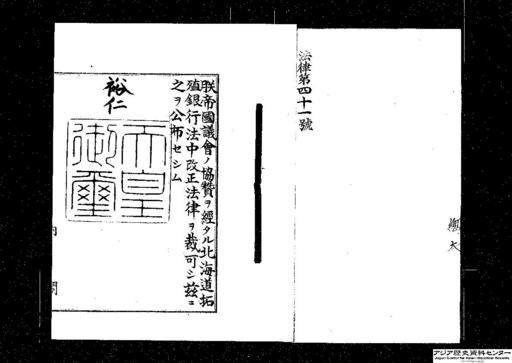 法律第四十一號
朕帝國議會ノ協贊ヲ經タル北海道拓
殖銀行法中改正法律ヲ裁可シ茲ニ
之ヲ公布セシム
裕仁
天皇
御璽
内閣
アジア歴史資料センター
Japan Center for Asian Historical Records